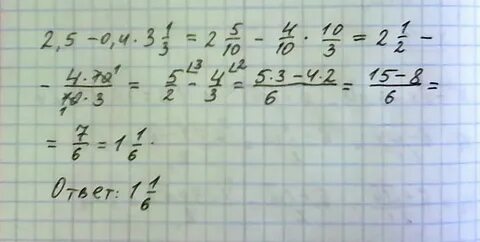 2,5 - 0,4 · 3 1/3 = 2 5/10 - 4/10 · 10/3 = 2 1/2 -
- 4·10¹/₁10·3 = 5/2 ⌞3 - 4/3 ⌞2 = 5·3-4·2/6 = 15-8/6 =
= 7/6 = 1 1/6.
Ответ: 1 1/6